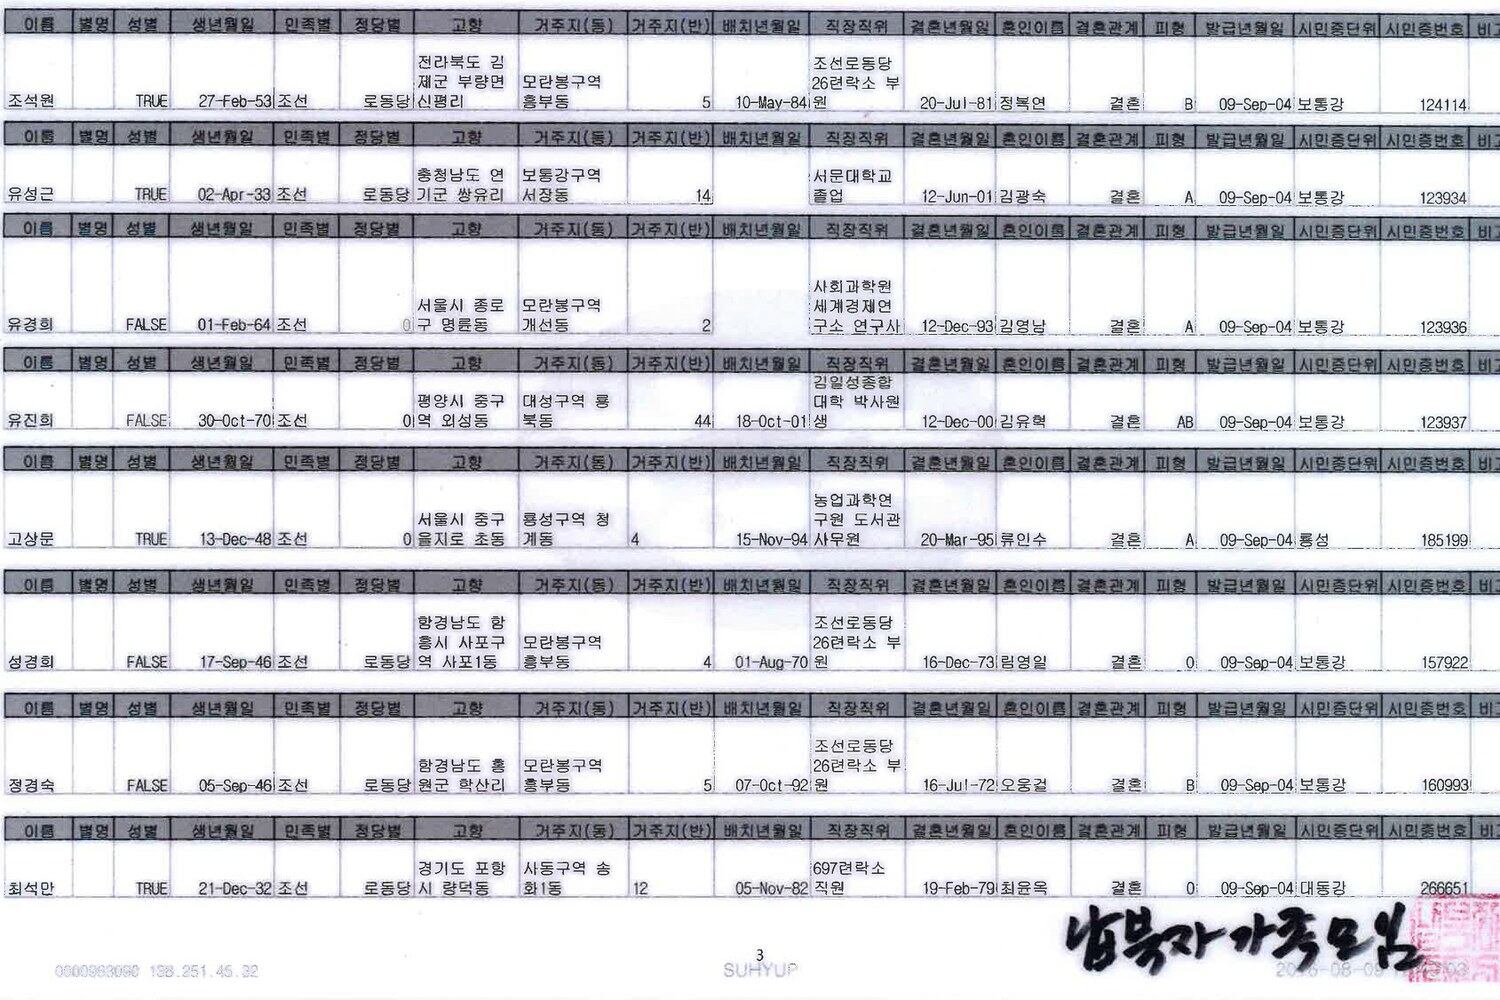 이름 별명 성별 생년월일 민족별 정당별 고향 거주지(동) 거주지(반) 배치년월일 직장직위 결혼년월일 혼인이름 결혼관계 피형 발급년월일 시민증단위 시민증번호 비고
조석원 TRUE 27-Feb-53 조선 로동당 전라북도 김제군 부량면 신평리 모란봉구역 흥부동 5 10-May-84 조선로동당 26련락소 부원 20-Jul-81 정복연 결혼 B 09-Sep-04 보통강 124114
이름 별명 성별 생년월일 민족별 정당별 고향 거주지(동) 거주지(반) 배치년월일 직장직위 결혼년월일 혼인이름 결혼관계 피형 발급년월일 시민증단위 시민증번호 비고
유성근 TRUE 02-Apr-33 조선 로동당 충청남도 연기군 쌍유리 보통강구역 서장동 14 서문대학교 졸업 12-Jun-01 김광숙 결혼 A 09-Sep-04 보통강 123934
이름 별명 성별 생년월일 민족별 정당별 고향 거주지(동) 거주지(반) 배치년월일 직장직위 결혼년월일 혼인이름 결혼관계 피형 발급년월일 시민증단위 시민증번호 비고
유경희 FALSE 01-Feb-64 조선 0 서울시 종로구 명륜동 모란봉구역 개선동 2 사회과학원 세계경제연구소 연구사 12-Dec-93 김영남 결혼 A 09-Sep-04 보통강 123936
이름 별명 성별 생년월일 민족별 정당별 고향 거주지(동) 거주지(반) 배치년월일 직장직위 결혼년월일 혼인이름 결혼관계 피형 발급년월일 시민증단위 시민증번호 비고
유진희 FALSE 30-Oct-70 조선 0 평양시 중구역 외성동 대성구역 룡북동 44 18-Oct-01 김일성종합대학 박사원생 12-Dec-00 김유혁 결혼 AB 09-Sep-04 보통강 123937
이름 별명 성별 생년월일 민족별 정당별 고향 거주지(동) 거주지(반) 배치년월일 직장직위 결혼년월일 혼인이름 결혼관계 피형 발급년월일 시민증단위 시민증번호 비고
고상문 TRUE 13-Dec-48 조선 0 서울시 중구 을지로 초동 룡성구역 청계동 4 15-Nov-94 농업과학연구원 도서관 사무원 20-Mar-95 류인수 결혼 A 09-Sep-04 룡성 185199
이름 별명 성별 생년월일 민족별 정당별 고향 거주지(동) 거주지(반) 배치년월일 직장직위 결혼년월일 혼인이름 결혼관계 피형 발급년월일 시민증단위 시민증번호 비고
성경희 FALSE 17-Sep-46 조선 로동당 함경남도 함흥시 사포구역 사포1동 모란봉구역 흥부동 4 01-Aug-70 조선로동당 26련락소 부원 16-Dec-73 림영일 결혼 O 09-Sep-04 보통강 157922
이름 별명 성별 생년월일 민족별 정당별 고향 거주지(동) 거주지(반) 배치년월일 직장직위 결혼년월일 혼인이름 결혼관계 피형 발급년월일 시민증단위 시민증번호 비고
정경숙 FALSE 05-Sep-46 조선 로동당 함경남도 홍원군 학산리 모란봉구역 흥부동 5 07-Oct-92 조선로동당 26련락소 부원 16-Jul-72 오웅걸 결혼 B 09-Sep-04 보통강 160993
이름 별명 성별 생년월일 민족별 정당별 고향 거주지(동) 거주지(반) 배치년월일 직장직위 결혼년월일 혼인이름 결혼관계 피형 발급년월일 시민증단위 시민증번호 비고
최석만 TRUE 21-Dec-32 조선 로동당 경기도 포항시 량덕동 사동구역 송화1동 12 05-Nov-82 697련락소 직원 19-Feb-79 최윤옥 결혼 O 09-Sep-04 대동강 266651
납북자가족모임
3
SUHYUP